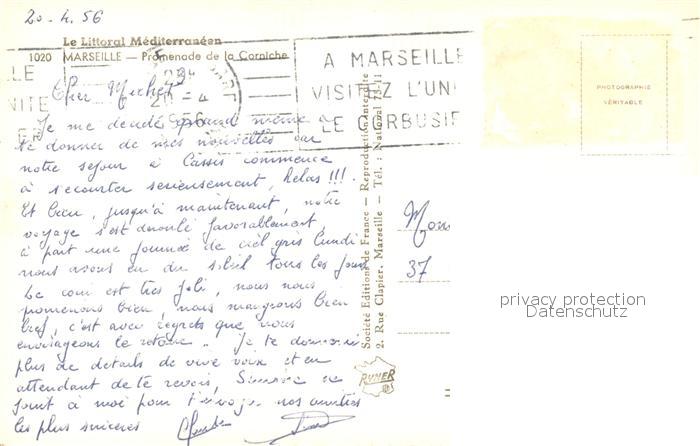 20-4.56
Le Littoral Méditerranéen
1020 MARSEILLE — Promenade de la Corniche
A MARSEILLE
VISITEZ L'UNI
LE CORBUSIE
LE
NITE
ER
PHOTOGRAPHIE
VÉRITABLE
Cher Michel
Je me décide quand même à
te donner de mes nouvelles car
notre séjour à Cassis commence
à s'écourter sérieusement, hélas !!!
Et bien, jusqu'à maintenant, notre
voyage s'est déroulé favorablement,
à part une journée de ciel gris lundi
nous avons eu du soleil tous les jours
Le coin est très joli, nous nous
promenons bien, nous mangeons bien
bref, c'est avec regrets que nous
envisageons le retour.. Je te donnerai
plus de détails de vive voix et en
attendant de te revoir, Simone se
joint à moi pour t'envoyer nos amitiés
les plus sincères
Société Editions de France — Reproduction interdite
2, Rue Clapier, Marseille — Tél. : National 17-11
37
RUNER
privacy protection
Datenschutz